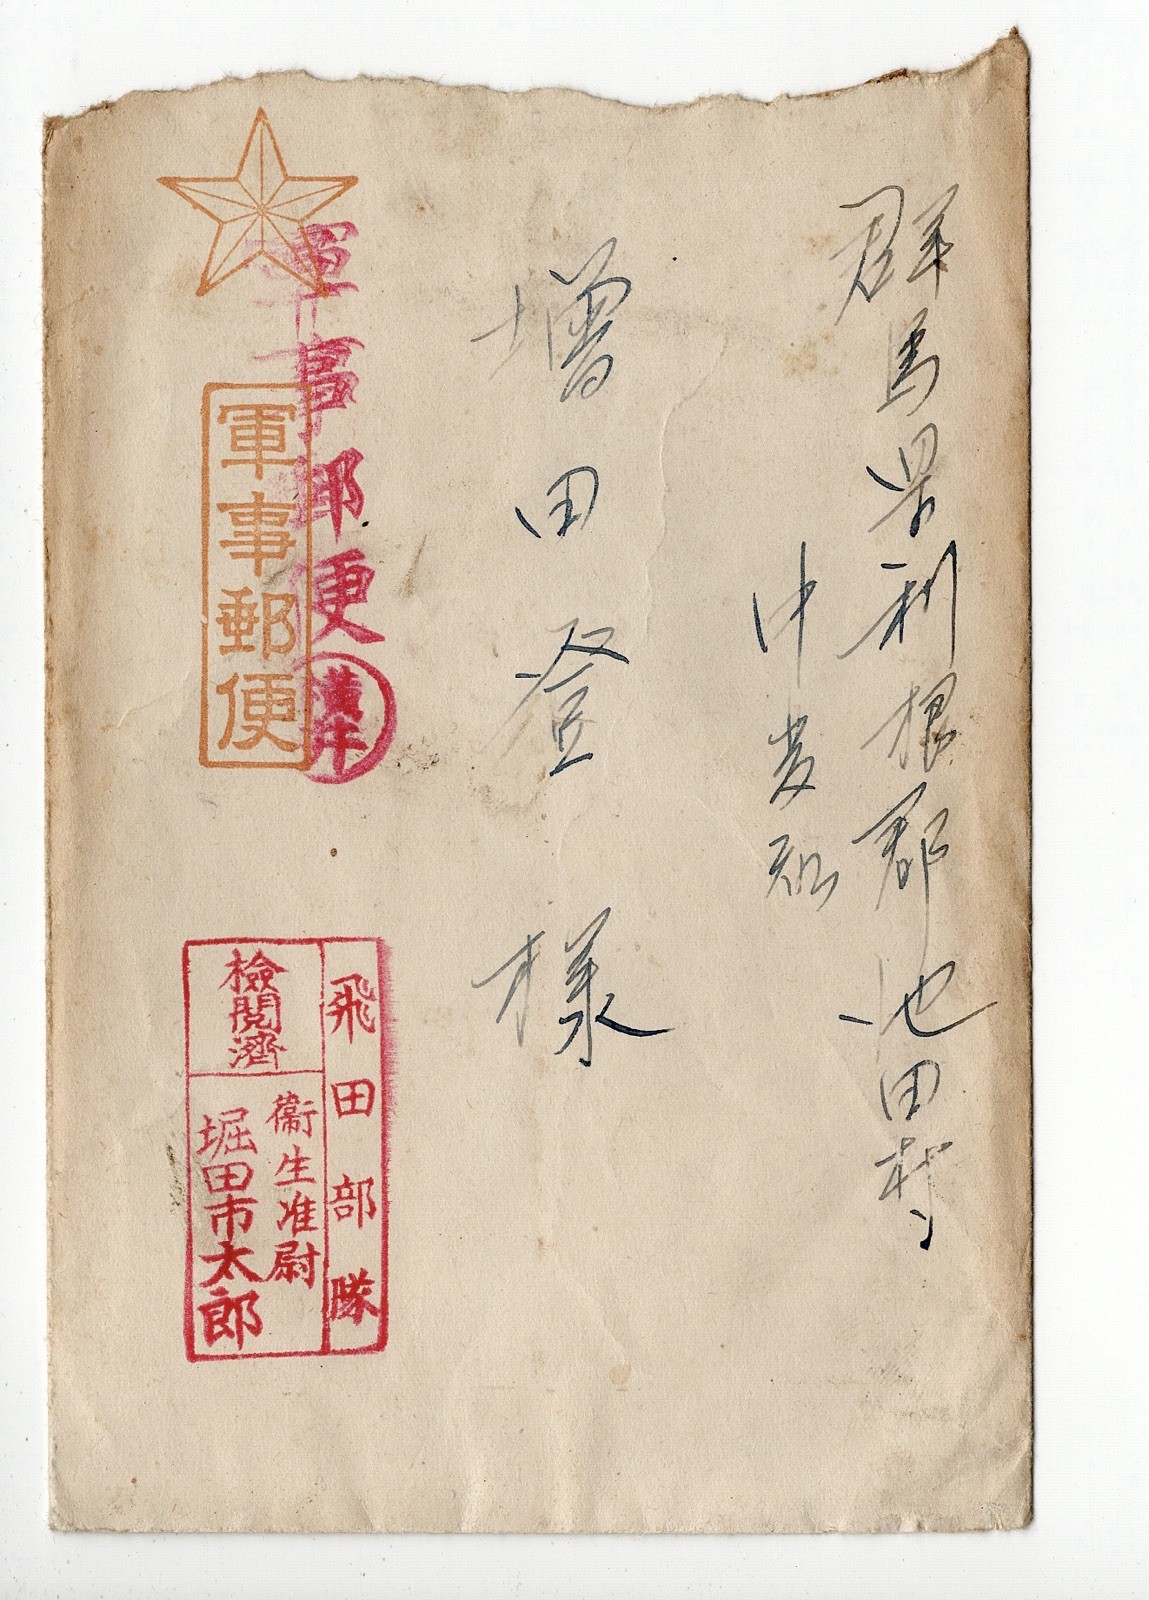 群馬県利根郡池田村
中発知
増田登様
軍事郵便
軍事郵便
飛田部隊
檢閲濟
衞生准尉
堀田市太郎